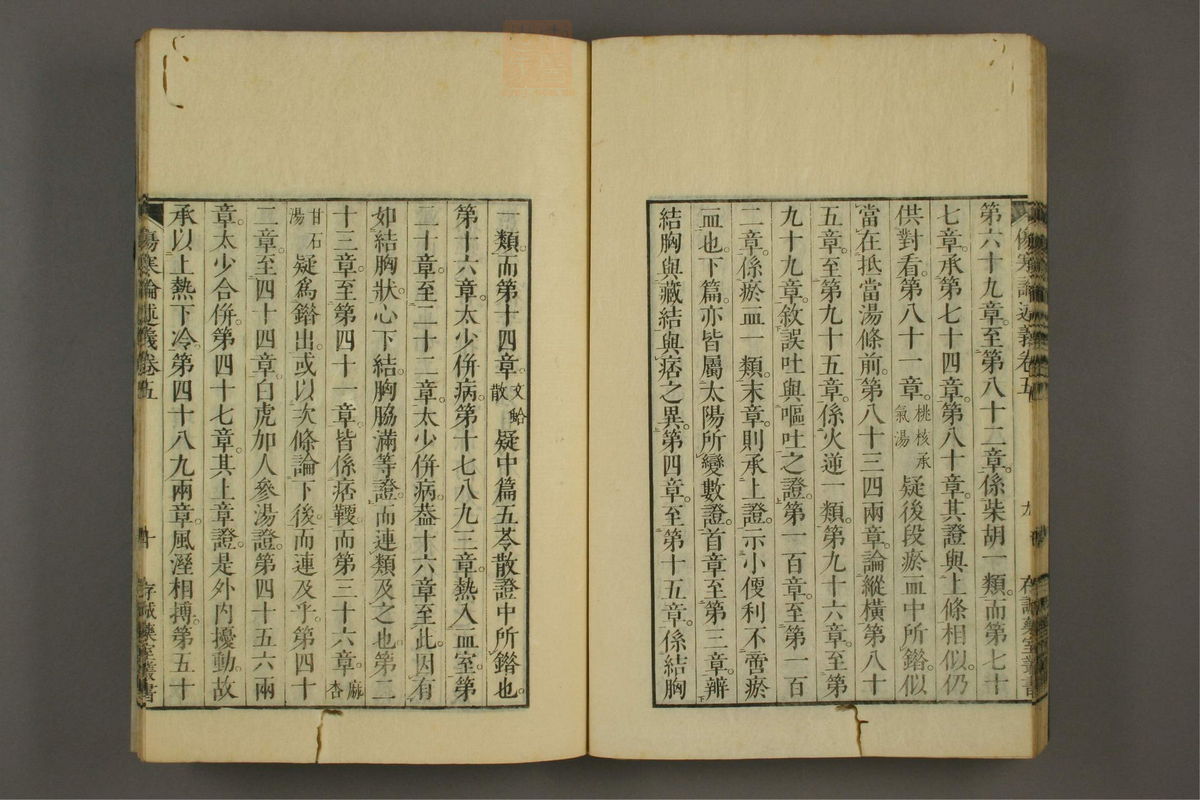 傷寒論述義卷五
九
存誠藥室叢書
第六十九章。至第八十二章。係柴胡一類。而第七十
七章。承第七十四章。第八十章。其證與上條相似。仍
供對看。第八十一章。桃核承氣湯疑後段瘀血中所錯。似
當在抵當湯條前。第八十三四兩章。論縱橫。第八十
五章。至第九十五章。係火逆一類。第九十六章。至第
九十九章。敘誤吐與嘔吐之證。第一百章。至第一百
二章。係瘀血一類。末章。則承上證。示小便利不啻瘀
血也。下篇。亦皆屬太陽所變數證。首章至第三章。辨
結胸與藏結與痞之異。第四章。至第十五章。係結胸
一類。而第十四章。文蛤散疑中篇五苓散證中所錯也。
第十六章。太少併病。第十七八九三章。熱入血室。第
二十章。至二十二章。太少併病。葢十六章至此。因有
如結胸狀。心下結。胸脇滿等證。而連類及之也。第二
十三章。至第四十一章。皆係痞鞕。而第三十六章。麻杏
甘石湯疑爲錯出。或以次條論下後。而連及乎。第四十
二章。至四十四章。白虎加人參湯證。第四十五六兩
章。太少合併。第四十七章。其上章證。是外內擾動。故
承以上熱下冷。第四十八九兩章。風溼相搏。第五十
傷寒論述義卷五
十
存誠藥室叢書